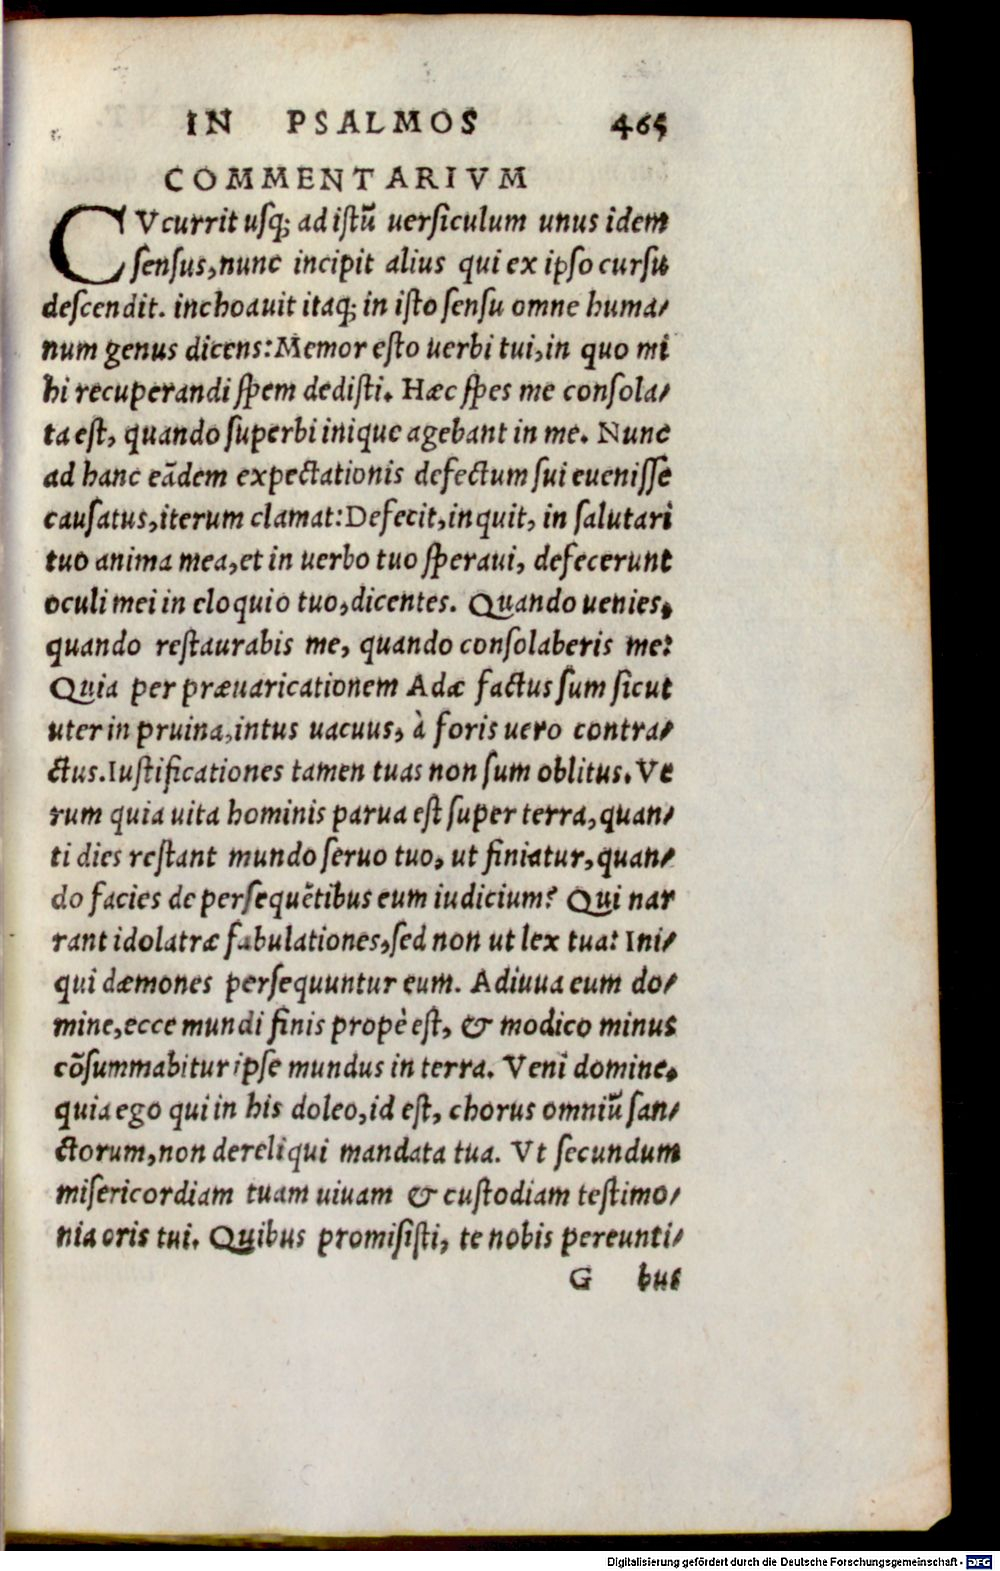 IN PSALMOS 465
COMMENTARIVM
CVcurrit usq; ad istũ uersiculum unus idem
sensus, nunc incipit alius qui ex ipso cursu
descendit. inchoauit itaq; in isto sensu omne huma-
num genus dicens: Memor esto uerbi tui, in quo mi
hi recuperandi spem dedisti. Hæc spes me consola-
ta est, quando superbi inique agebant in me. Nunc
ad hanc eãdem expectationis defectum sui euenisse
causatus, iterum clamat: Defecit, inquit, in salutari
tuo anima mea, et in uerbo tuo speraui, defecerunt
oculi mei in eloquio tuo, dicentes. Quando uenies,
quando restaurabis me, quando consolaberis me?
Quia per præuaricationem Adæ factus sum sicut
uter in pruina, intus uacuus, à foris uero contra-
ctus. Iustificationes tamen tuas non sum oblitus. Ve
rum quia uita hominis parua est super terra, quan-
ti dies restant mundo seruo tuo, ut finiatur, quan-
do facies de persequẽtibus eum iudicium? Qui nar
rant idolatræ fabulationes, sed non ut lex tua: Ini-
qui dæmones persequuntur eum. Adiuua eum do-
mine, ecce mundi finis propè est, & modico minus
cõsummabitur ipse mundus in terra. Veni domine,
quia ego qui in his doleo, id est, chorus omniũ san-
ctorum, non dereliqui mandata tua. Vt secundum
misericordiam tuam uiuam & custodiam testimo-
nia oris tui. Quibus promisisti, te nobis pereunti-
G bus
Digitalisierung gefördert durch die Deutsche Forschungsgemeinschaft - DFG